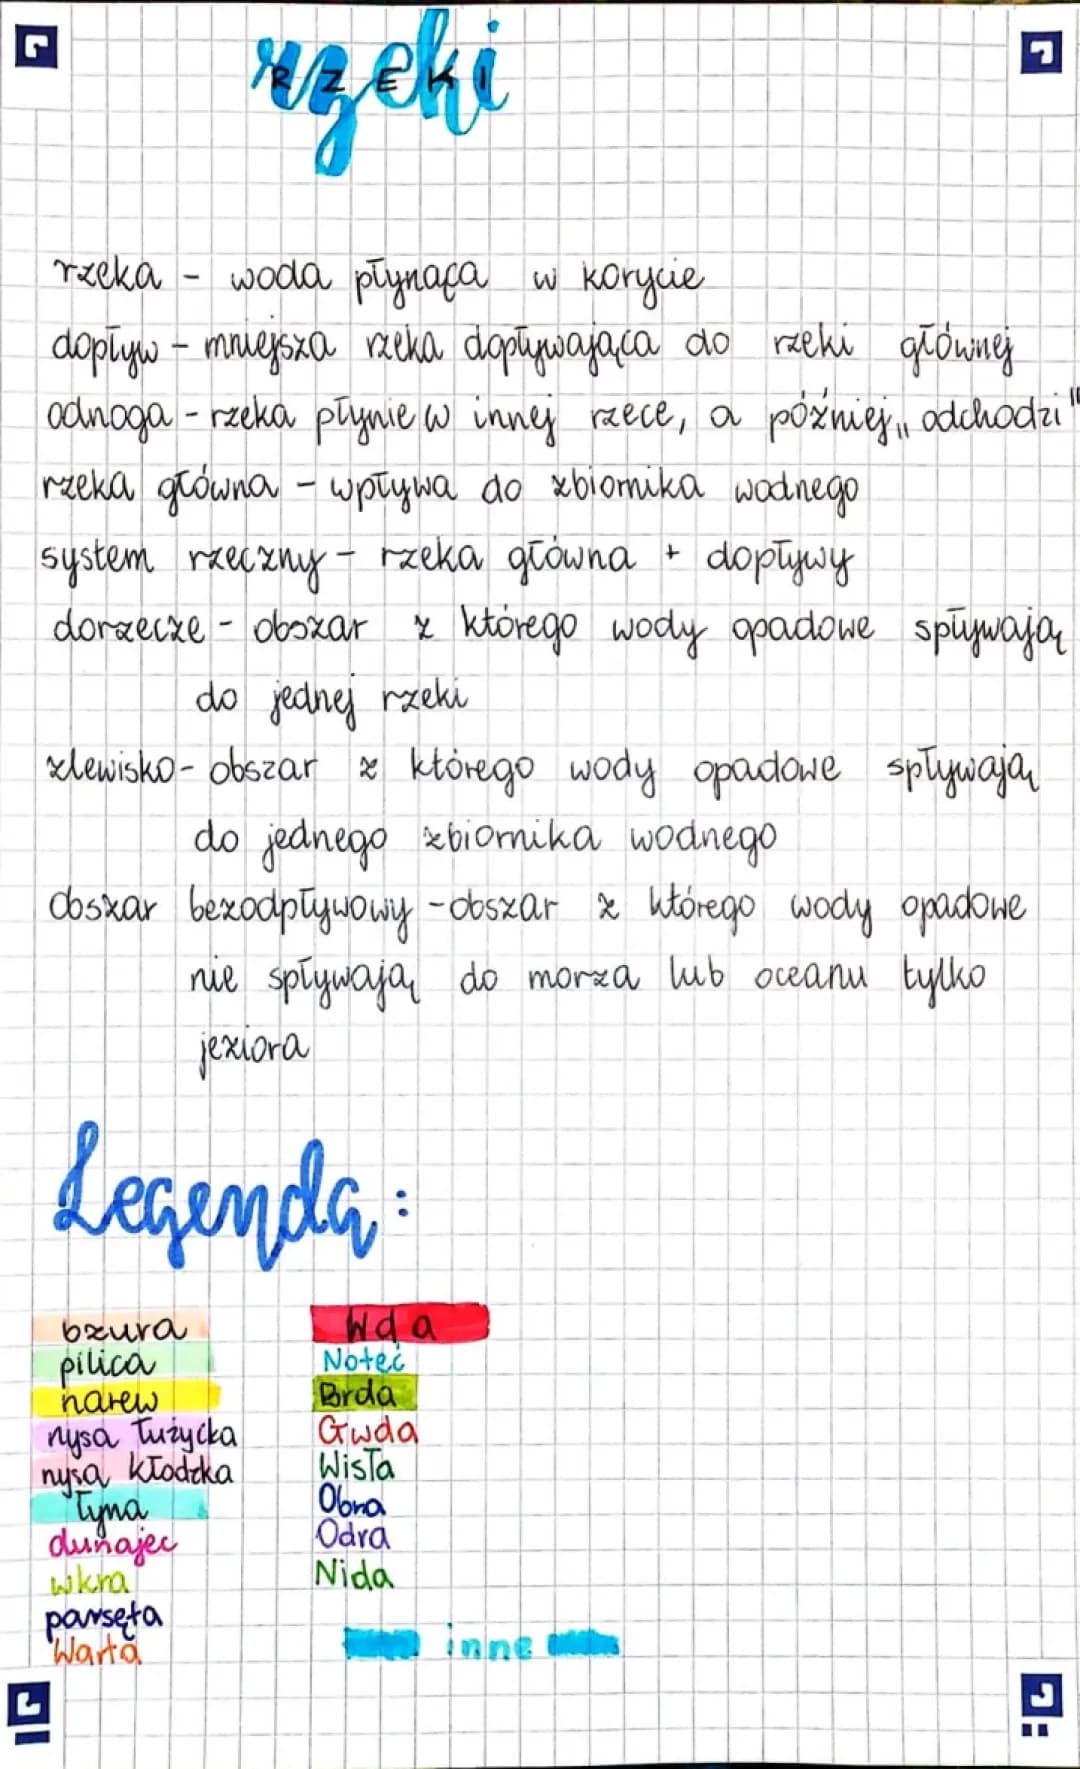 rzeki
RZEKI
rzeka - woda płynąca w korycie
dopływ - mniejsza rzeka dopływająca do rzeki głównej
odnoga - rzeka płynie w innej rzece, a później „odchodzi"
rzeka główna - wpływa do zbiornika wodnego
system rzeczny - rzeka główna + dopływy
dorzecze - obszar z którego wody opadowe spływają
do jednej rzeki
zlewisko - obszar z którego wody opadowe spływają
do jednego zbiornika wodnego
obszar bezodpływowy - obszar z którego wody opadowe
nie spływają do morza lub oceanu tylko
jeziora
Legenda:
bzura
pilica
narew
nysa łużycka
nysa kłodzka
łyna
dunajec
wkra
parsęta
Warta
Wda
Noteć
Brda
Gwda
Wisła
Obra
Odra
Nida
inne